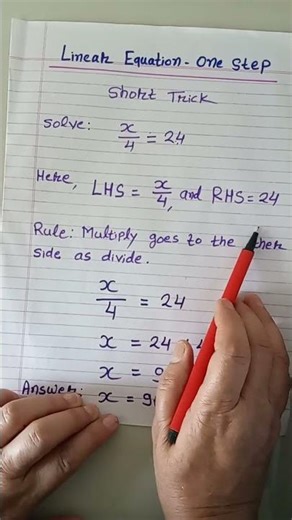 Linear Equation - One Step
Short Trick
Solve: x/4 = 24
Here, LHS = x/4, and RHS = 24
Rule: Multiply goes to the
side as divide.
x/4 = 24
x = 24
x =
Answer: x =